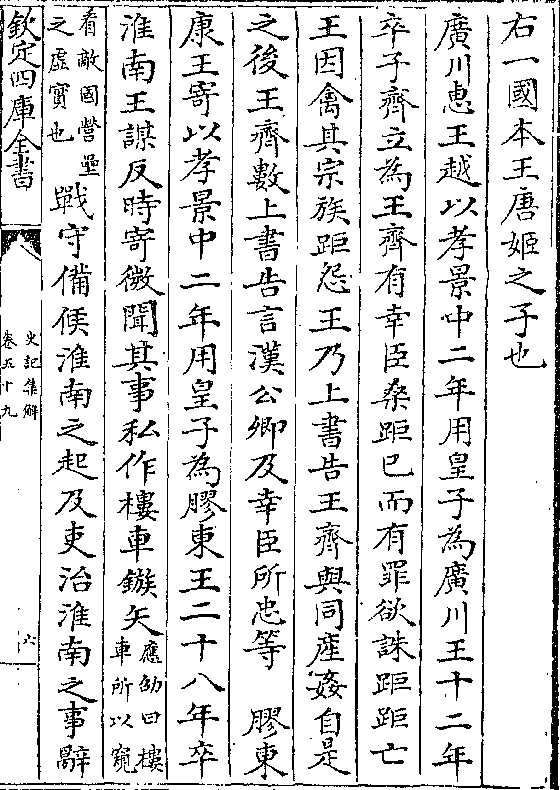 右一國本王唐姬之子也
廣川惠王越以孝景中二年用皇子為廣川王十二年
卒子齊立為王齊有幸臣桑距已而有罪欲誅距距亡
王因禽其宗族距怨王乃上書告王齊與同產姦自是
之後王齊數上書告言漢公卿及幸臣所忠等　膠東
康王寄以孝景中二年用皇子為膠東王二十八年卒
淮南王謀反時寄微聞其事私作樓車鏃矢應劭曰樓車所以窺
看敵國營壘之虛實也戰守備候淮南之起及吏治淮南之事辭
欽定四庫全書
史記集解
卷五十九
六